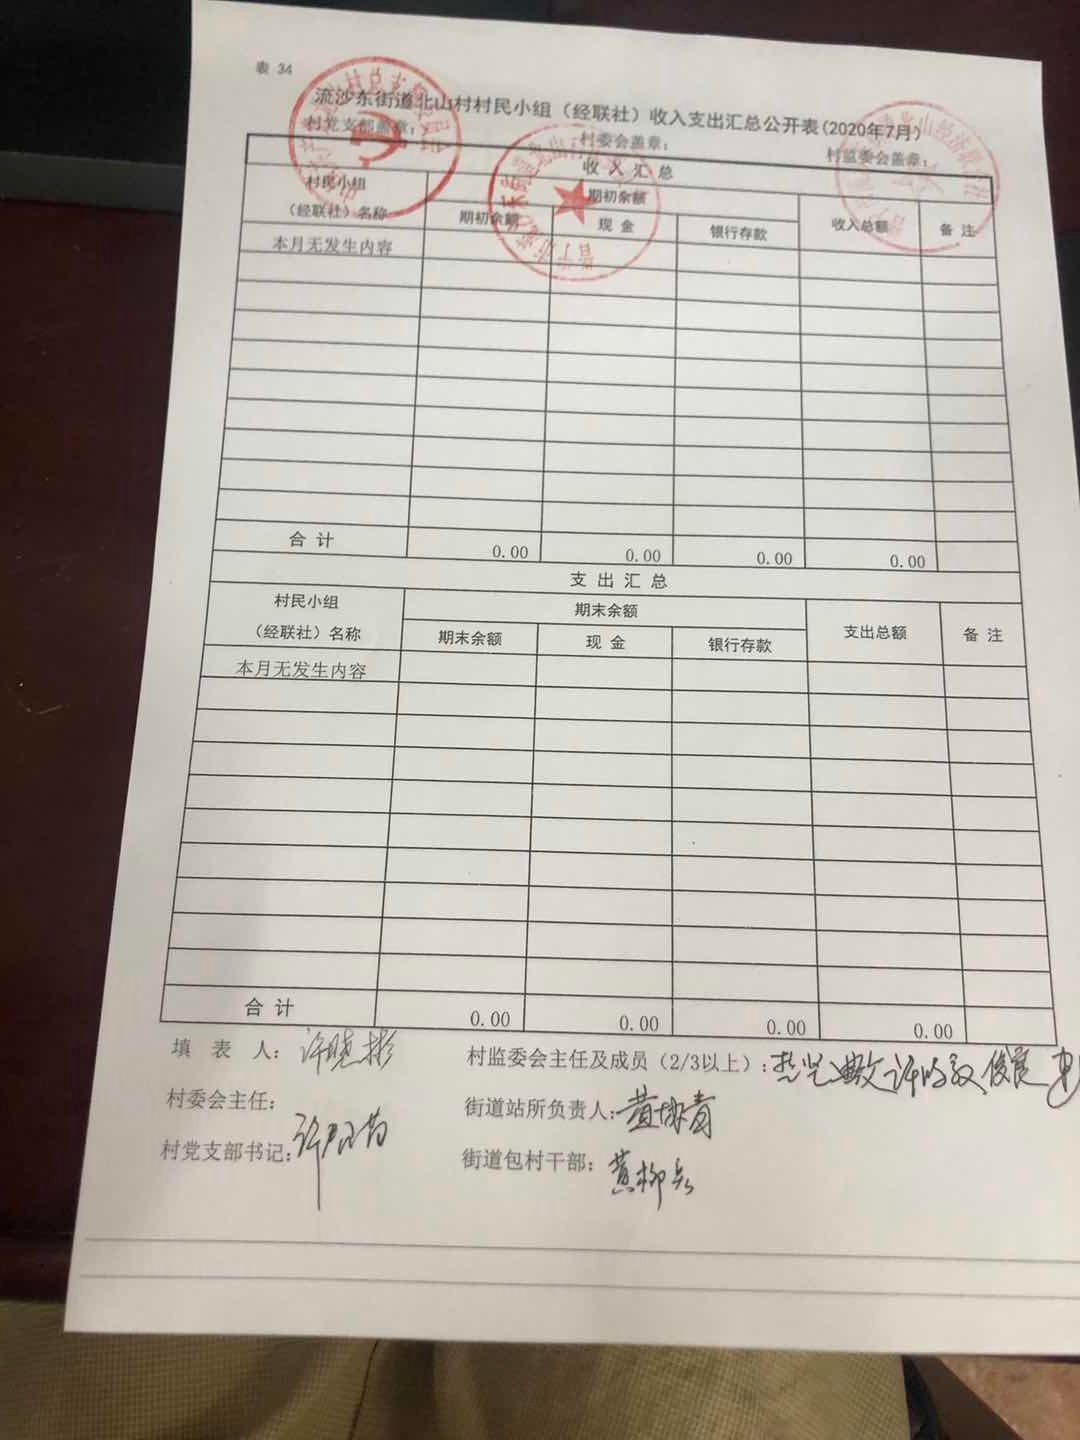 表 34
流沙东街道北山村村民小组（经联社）收入支出汇总公开表(2020年7月)
村党支部盖章： 村委会盖章： 村监委会盖章：
收 入 汇 总
村民小组
（经联社）名称
期初余额
期初余额 现 金 银行存款 收入总额 备 注
本月无发生内容
合 计 0.00 0.00 0.00 0.00
支 出 汇 总
村民小组
（经联社）名称
期末余额
期末余额 现 金 银行存款 支出总额 备 注
本月无发生内容
合 计 0.00 0.00 0.00 0.00
填 表 人： 许晓彬 村监委会主任及成员（2/3以上）：
村委会主任： 街道站所负责人：
村党支部书记： 街道包村干部：